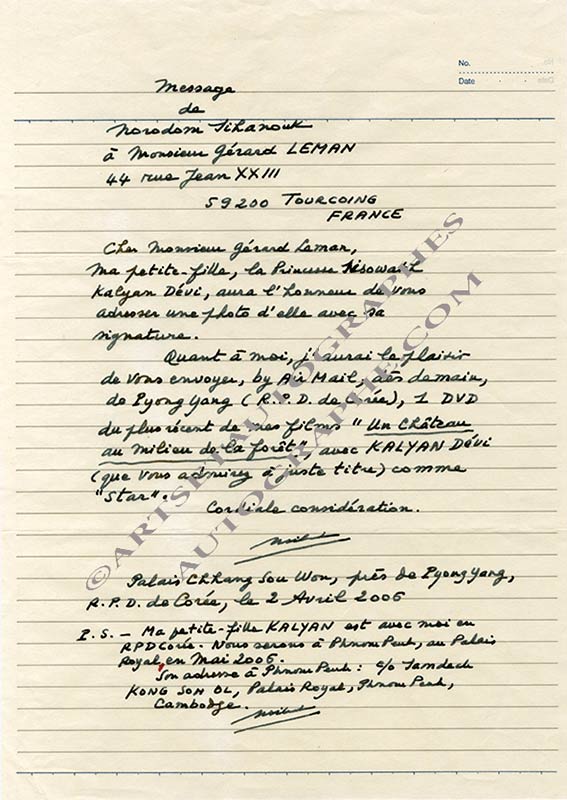 No.
Date
Message
de
Norodom Sihanouk
à Monsieur Gérard LEMAN
44 rue Jean XXIII
59200 TOURCOING
FRANCE
Cher Monsieur Gérard Leman,
Ma petite-fille, la Princesse Sisowath
Kalyan Dévi, aura l'honneur de vous
adresser une photo d'elle avec sa
signature.
Quant à moi, j'aurai le plaisir
de vous envoyer, by Air Mail, dès demain,
de Pyongyang (R.P.D. de Corée), 1 DVD
du plus récent de mes films "Un Château
au milieu de la forêt" avec KALYAN DÉVI
(que vous admirez à juste titre) comme
"Star".
Cordiale considération.
Palais Chhang Sou Won, près de Pyongyang,
R.P.D. de Corée, le 2 Avril 2006
P.S. – Ma petite-fille KALYAN est avec moi en
RPD Corée. Nous serons à Phnom Penh, au Palais
Royal, en Mai 2006.
Son adresse à Phnom Penh : c/o Samdech
KONG SOM OL, Palais Royal, Phnom Penh,
Cambodge.
©ARTS ET AUTOGRAPHES
AUTOGRAPHE.COM